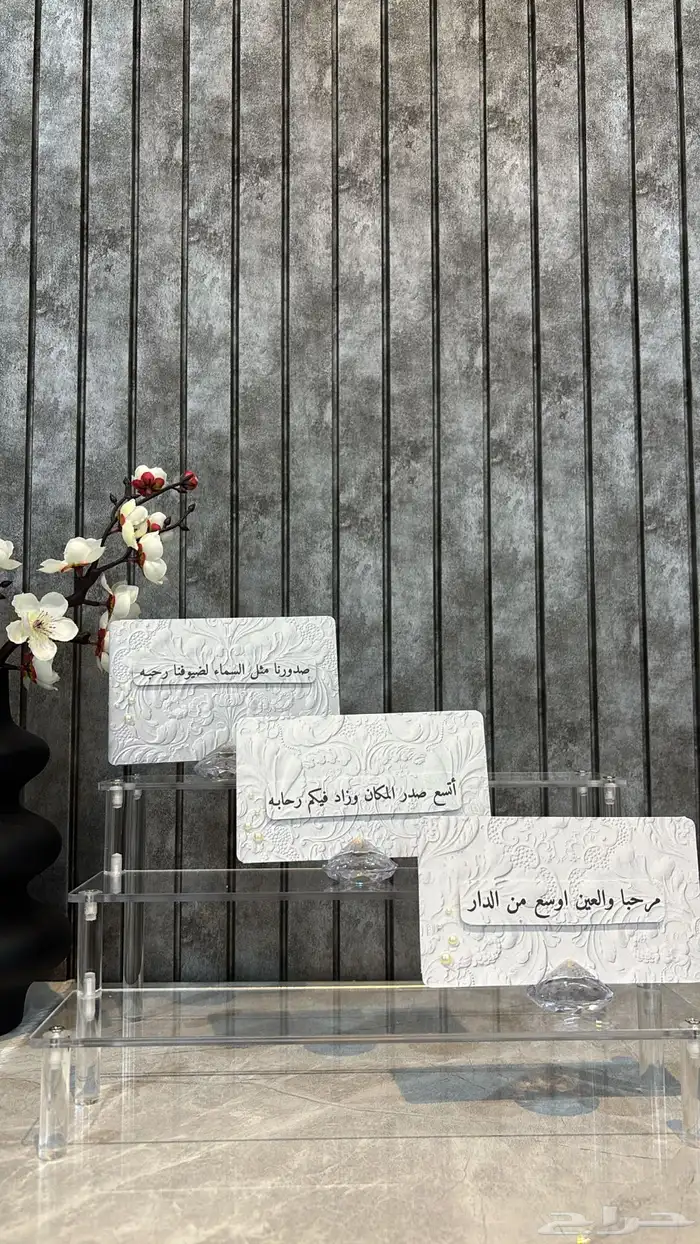 صدورنا مثل السماء لضيوفنا رحبه
أتسع صدر المكان وزاد فيكم رحابه
مرحبا والعين اوسع من الدار
حراج